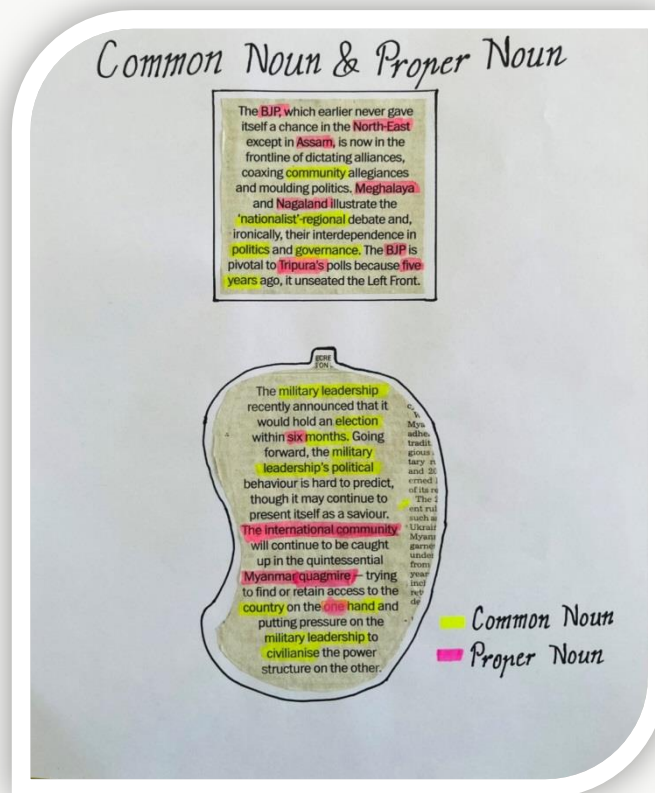 Common Noun & Proper Noun
The BJP, which earlier never gave
itself a chance in the North-East
except in Assam, is now in the
frontline of dictating alliances,
coaxing community allegiances
and moulding politics. Meghalaya
and Nagaland illustrate the
'nationalist'-regional debate and,
ironically, their interdependence in
politics and governance. The BJP is
pivotal to Tripura's polls because five
years ago, it unseated the Left Front.
The military leadership
recently announced that it
would hold an election
within six months. Going
forward, the military
leadership's political
behaviour is hard to predict,
though it may continue to
present itself as a saviour.
The international community
will continue to be caught
up in the quintessential
Myanmar quagmire – trying
to find or retain access to the
country on the one hand and
putting pressure on the
military leadership to
civilianise the power
structure on the other.
Mya
adhe
tradit
gious
tary
and
erned
of its
The
ent rul
such
Ukrai
Myan
garne
unde
from
year
incl
Common Noun
Proper Noun